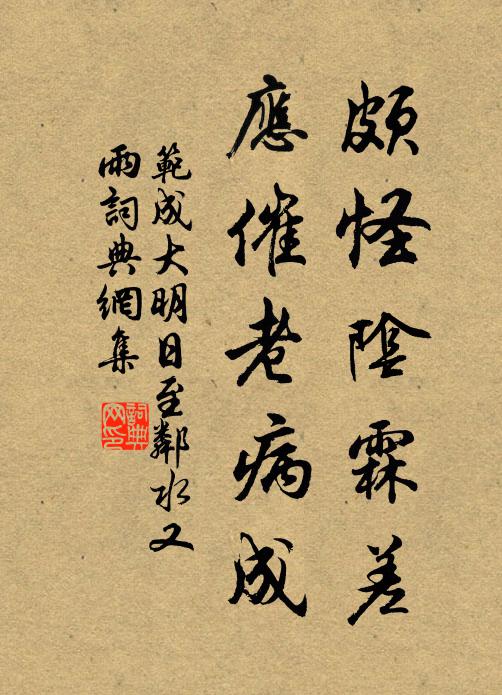 頗怪陰霖差
應催老病成
範成大明日至鄰水又
雨詞典網集
詞典
网印